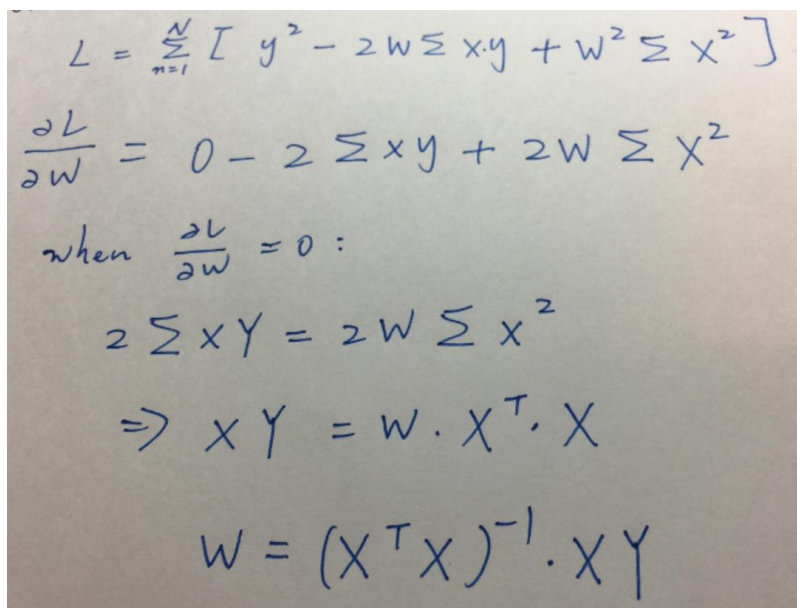 L = \sum_{n=1}^{N} [ y² - 2W Σ x·y + W² Σ X² ]
∂L/∂W = 0 - 2 Σ x y + 2W Σ X²
when ∂L/∂W = 0 :
2 Σ x Y = 2 W Σ x²
⇒ X Y = W · X^T · X
W = (X^T X)^{-1} · X Y